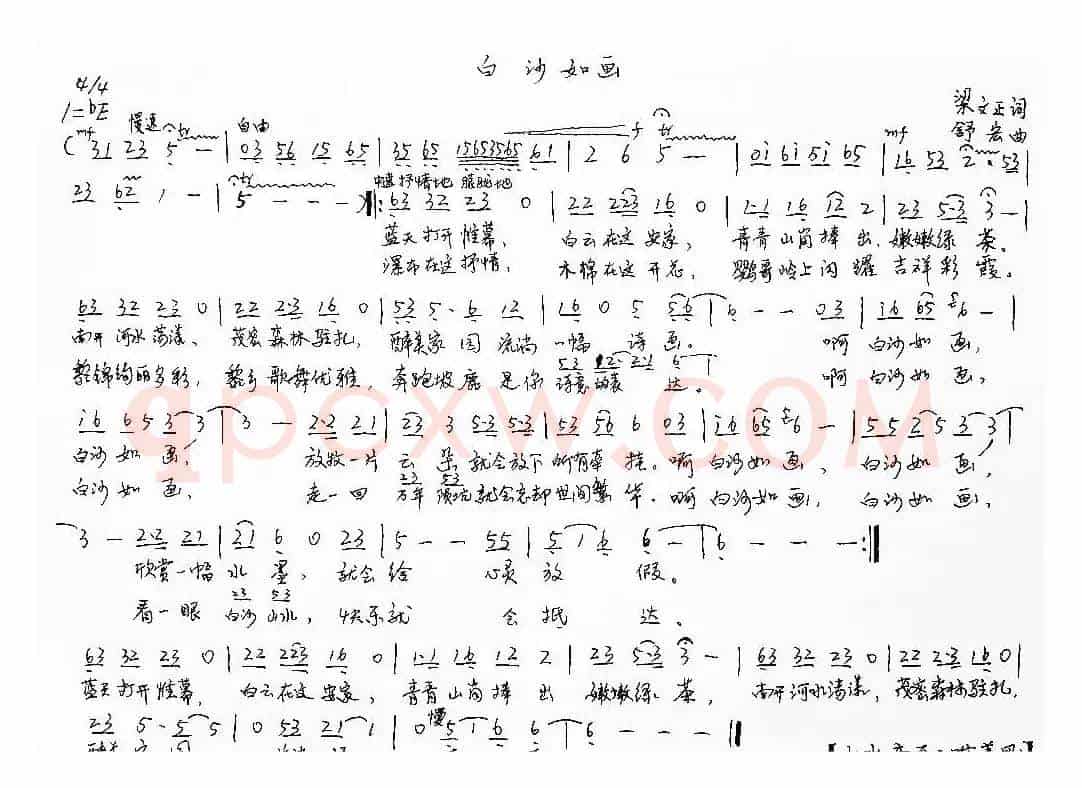 白沙如画
4/4
1=bE
梁文正词
舒宏曲
慢速 自由
(31 23 5 - | 03 56 15 65 | 35 65 15653565 61 | 2 6 5 - | 0i 6i 5i 65 | 16 53 2 · 53
mf tr f tr mf
23 62 1 - | 5 - - - ) ‖: 63 32 23 0 | 22 223 16 0 | 1·1 16 12 2 | 23 5·3 3 - |
蓝天打开帷幕, 白云在这安家, 青青山岗捧出,嫩嫩绿茶。
瀑布在这抒情, 木棉在这开花, 鹦哥岭上闪耀吉祥彩霞。
63 32 23 0 | 22 2·3 16 0 | 53 5·6 12 | 16 0 5 56 | 6 - - 03 | i6 65 6 - |
南开河水荡漾、茂密森林驻扎, 醉美家园流淌一幅诗画。 啊 白沙如画,
53 12·2·1 6
黎锦绚丽多彩, 黎乡歌舞优雅, 奔跑坡鹿是你诗意的表达。 啊 白沙如画,
i6 6 5 3 3 | 3 - 2·2 21 | 23 3 5·3 5·3 | 53 56 6 03 | i6 65 6 - | 5 5 2 5 3 3 |
白沙如画, 放牧一片云朵就会放下所有牵挂。啊 白沙如画、 白沙如画,
23 53
白沙如画, 走一回万年陨坑就会忘却世间繁华。啊 白沙如画, 白沙如画,
3 - 2·2 21 | 21 6 0 23 | 5 - - 55 | 5 1 6 6 - | 6 - - - :‖
欣赏一幅水墨, 就会给 心灵放 假。
23 53
看一眼白沙山水, 快乐就 会抵 达。
63 32 23 0 | 22 223 16 0 | 1·1 16 12 2 | 23 5·3 3 - | 63 32 23 0 | 22 2·3 16 0 |
蓝天打开帷幕, 白云在这安家, 青青山岗捧出 嫩嫩绿茶, 南开河水清漾, 茂密森林驻扎,
慢
23 5·5 5 | 0 53 21 1 | 0 5 1 6 6 | 6 - - - ‖
qpcxw.com